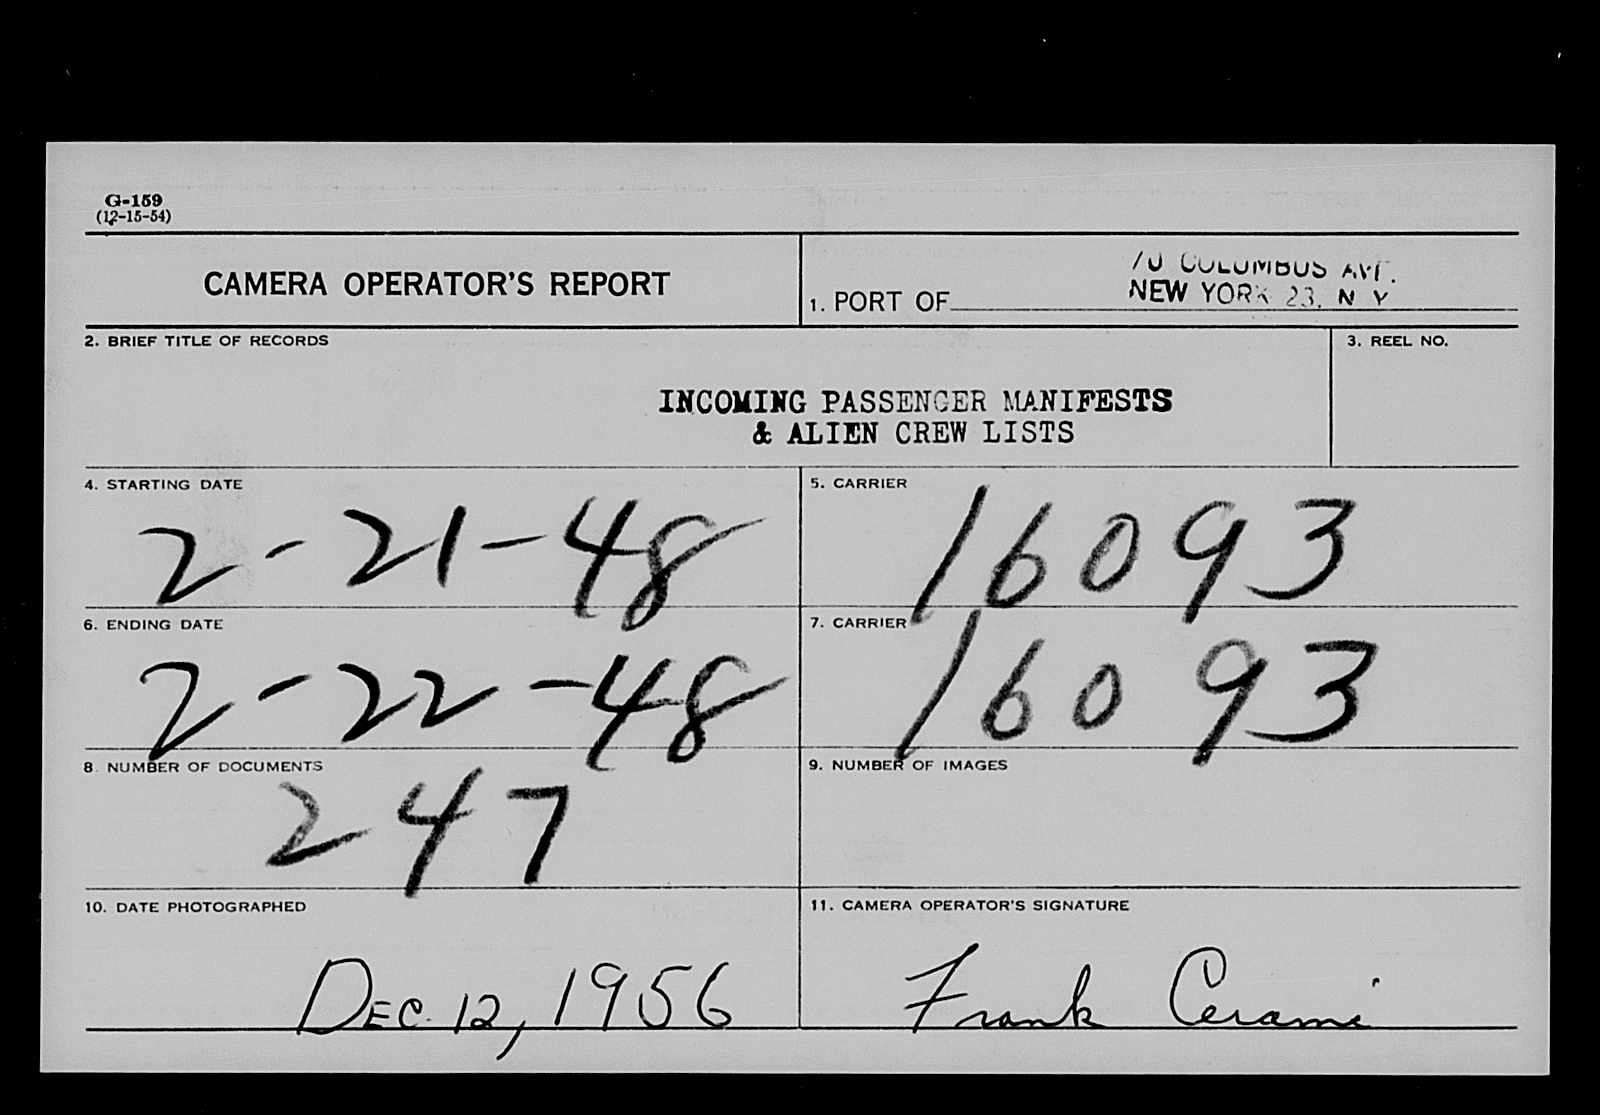 G-159
(12-15-54)
CAMERA OPERATOR'S REPORT
70 COLUMBUS AVE.
1. PORT OF NEW YORK 23, N Y
2. BRIEF TITLE OF RECORDS
3. REEL NO.
INCOMING PASSENGER MANIFESTS
& ALIEN CREW LISTS
4. STARTING DATE
2-21-48
5. CARRIER
16093
6. ENDING DATE
2-22-48
7. CARRIER
16093
8. NUMBER OF DOCUMENTS
247
9. NUMBER OF IMAGES
10. DATE PHOTOGRAPHED
DEC. 12, 1956
11. CAMERA OPERATOR'S SIGNATURE
Frank Cerami